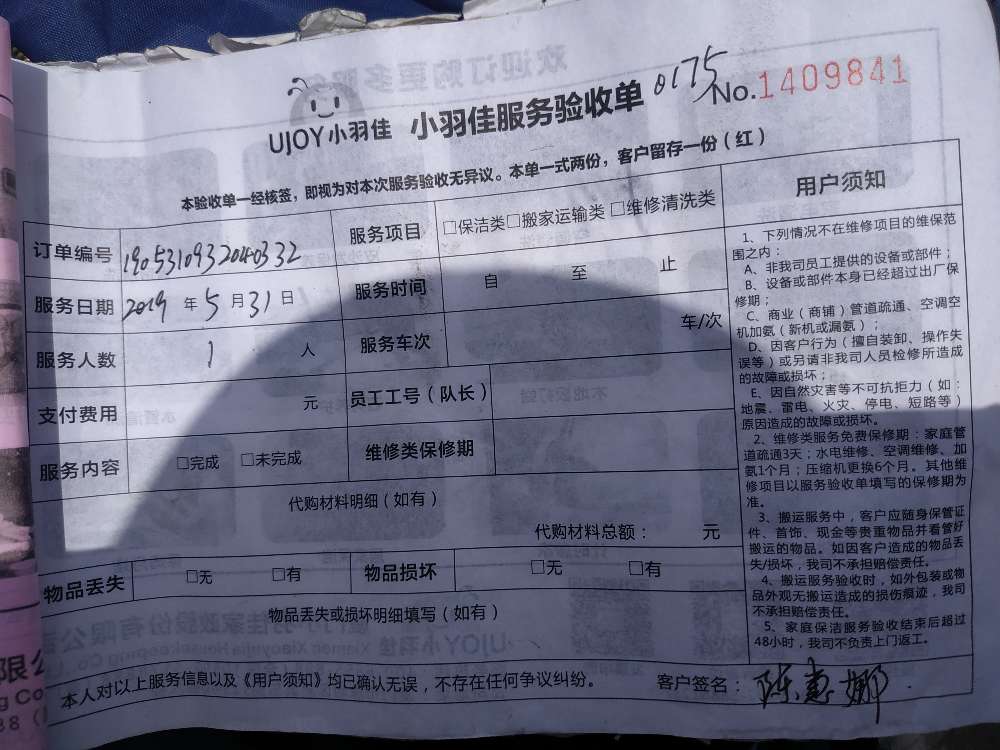 UJOY小羽佳 小羽佳服务验收单 0175 No.1409841
本验收单一经核签，即视为对本次服务验收无异议。本单一式两份，客户留存一份（红）
订单编号 1905310932040332 服务项目 □保洁类□搬家运输类 □维修清洗类
服务日期 2019 年 5 月 31 日 服务时间 自 至 止
服务人数 1 人 服务车次 车/次
支付费用 元 员工工号（队长）
服务内容 □完成 □未完成 维修类保修期
代购材料明细（如有）
代购材料总额： 元
物品丢失 □无 □有 物品损坏 □无 □有
物品丢失或损坏明细填写（如有）
本人对以上服务信息以及《用户须知》均已确认无误，不存在任何争议纠纷。 客户签名：陈惠娜
用户须知
1、下列情况不在维修项目的维保范
围之内：
A、非我司员工提供的设备或部件；
B、设备或部件本身已经超过出厂保
修期；
C、商业（商铺）管道疏通、空调空
机加氨（新机或漏氨）；
D、因客户行为（擅自装卸、操作失
误等）或另请非我司人员检修所造成
的故障或损坏；
E、因自然灾害等不可抗拒力（如：
地震、雷电、火灾、停电、短路等）
原因造成的故障或损坏。
2、维修类服务免费保修期：家庭管
道疏通3天；水电维修、空调维修、加
氨1个月；压缩机更换6个月。其他维
修项目以服务验收单填写的保修期为
准。
3、搬运服务中，客户应随身保管证
件、首饰、现金等贵重物品并看管好
搬运的物品。如因客户造成的物品丢
失/损坏，我司不承担赔偿责任。
4、搬运服务验收时，如外包装或物
品外观无搬运造成的损伤痕迹，我司
不承担赔偿责任。
5、家庭保洁服务验收结束后超过
48小时，我司不负责上门返工。